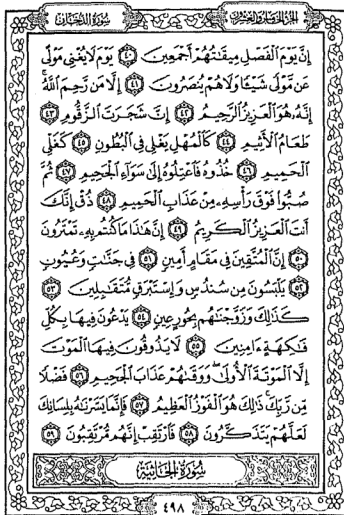 الجزء الخامس والعشرون
سورة الدخان
إِنَّ يَوْمَ ٱلْفَصْلِ مِيقَٰتُهُمْ أَجْمَعِينَ ٤٠ يَوْمَ لَا يُغْنِى مَوْلًى
عَن مَّوْلًى شَيْـًٔا وَلَا هُمْ يُنصَرُونَ ٤١ إِلَّا مَن رَّحِمَ ٱللَّهُ ۚ
إِنَّهُۥ هُوَ ٱلْعَزِيزُ ٱلرَّحِيمُ ٤٢ إِنَّ شَجَرَتَ ٱلزَّقُّومِ ٤٣
طَعَامُ ٱلْأَثِيمِ ٤٤ كَٱلْمُهْلِ يَغْلِى فِى ٱلْبُطُونِ ٤٥ كَغَلْىِ
ٱلْحَمِيمِ ٤٦ خُذُوهُ فَٱعْتِلُوهُ إِلَىٰ سَوَآءِ ٱلْجَحِيمِ ٤٧ ثُمَّ
صُبُّوا۟ فَوْقَ رَأْسِهِۦ مِنْ عَذَابِ ٱلْحَمِيمِ ٤٨ ذُقْ إِنَّكَ
أَنتَ ٱلْعَزِيزُ ٱلْكَرِيمُ ٤٩ إِنَّ هَٰذَا مَا كُنتُم بِهِۦ تَمْتَرُونَ
٥٠ إِنَّ ٱلْمُتَّقِينَ فِى مَقَامٍ أَمِينٍ ٥١ فِى جَنَّٰتٍ وَعُيُونٍ
٥٢ يَلْبَسُونَ مِن سُندُسٍ وَإِسْتَبْرَقٍ مُّتَقَٰبِلِينَ ٥٣
كَذَٰلِكَ وَزَوَّجْنَٰهُم بِحُورٍ عِينٍ ٥٤ يَدْعُونَ فِيهَا بِكُلِّ
فَٰكِهَةٍ ءَامِنِينَ ٥٥ لَا يَذُوقُونَ فِيهَا ٱلْمَوْتَ
إِلَّا ٱلْمَوْتَةَ ٱلْأُولَىٰ ۖ وَوَقَىٰهُمْ عَذَابَ ٱلْجَحِيمِ ٥٦ فَضْلًا
مِّن رَّبِّكَ ۚ ذَٰلِكَ هُوَ ٱلْفَوْزُ ٱلْعَظِيمُ ٥٧ فَإِنَّمَا يَسَّرْنَٰهُ بِلِسَانِكَ
لَعَلَّهُمْ يَتَذَكَّرُونَ ٥٨ فَٱرْتَقِبْ إِنَّهُم مُّرْتَقِبُونَ ٥٩
سورة الجاثية
٤٩٨